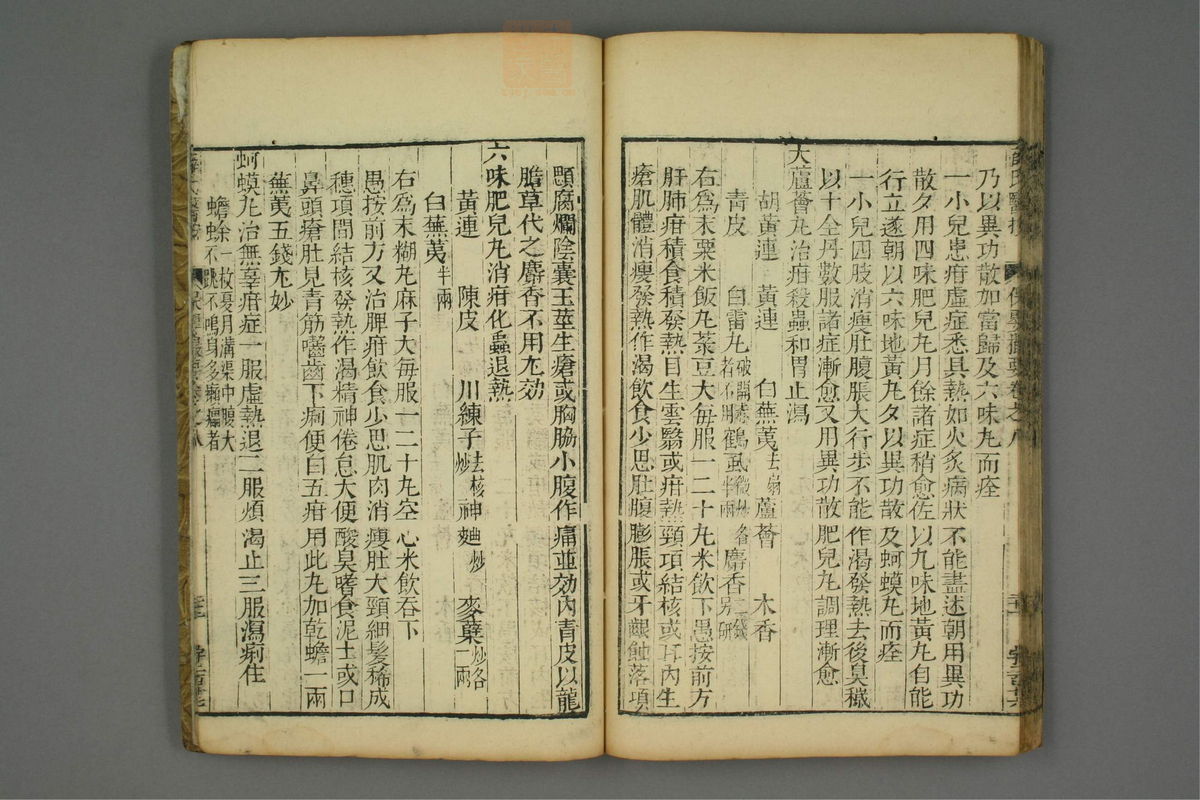 乃以異功散加當歸及六味丸而痊
一小兒患疳虛症悉具熱如火炙病狀不能盡述朝用異功
散夕用四味肥兒丸月餘諸症稍愈佐以九味地黃丸自能
行立遂朝以六味地黃丸夕以異功散及蚵蟆丸而痊
一小兒四肢消瘦肚腹脹大行步不能作渴發熱去後臭穢
以十全丹數服諸症漸愈又用異功散肥兒丸調理漸愈
大蘆薈丸治疳殺蟲和胃止瀉
胡黃連 黃連 白蕪荑去扇 蘆薈 木香
青皮 白雷丸破開赤者不用 鶴虱微炒各半兩 麝香二錢另研
右為末粟米飯丸菉豆大每服一二十丸米飲下愚按前方
肝肺疳積食積發熱目生雲翳或疳熱頸項結核或耳內生
瘡肌體消瘦發熱作渴飲食少思肚腹膨脹或牙齦蝕落項
顋腐爛陰囊玉莖生瘡或胸脇小腹作痛並効內青皮以龍
膽草代之麝香不用尤効
六味肥兒丸消疳化蟲退熱
黃連 陳皮 川練子去核炒 神麯炒 麥蘖炒各一兩
白蕪荑半兩
右為末糊丸麻子大每服一二十丸空心米飲吞下
愚按前方又治脾疳飲食少思肌肉消瘦肚大頸細髮稀成
穗項間結核發熱作渴精神倦怠大便酸臭嗜食泥土或口
鼻頭瘡肚見青筋嚙齒下痢便白五疳用此丸加乾蟾一兩
蕪荑五錢尤妙
蚵蟆丸治無辜疳症一服虛熱退二服煩渴止三服瀉痢住
蟾蜍一枚夏月溝渠中腹大不跳不鳴身多癩癗者